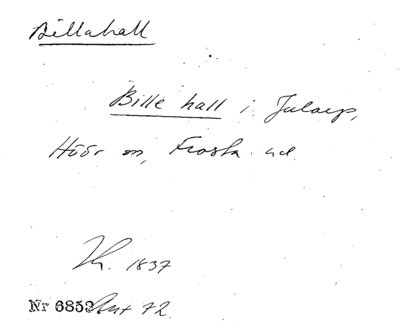 Billahall
Bille hall i Jularp,
Höör sn, Frosta hd
Kr. 1837
Nr 6853 Ant 72